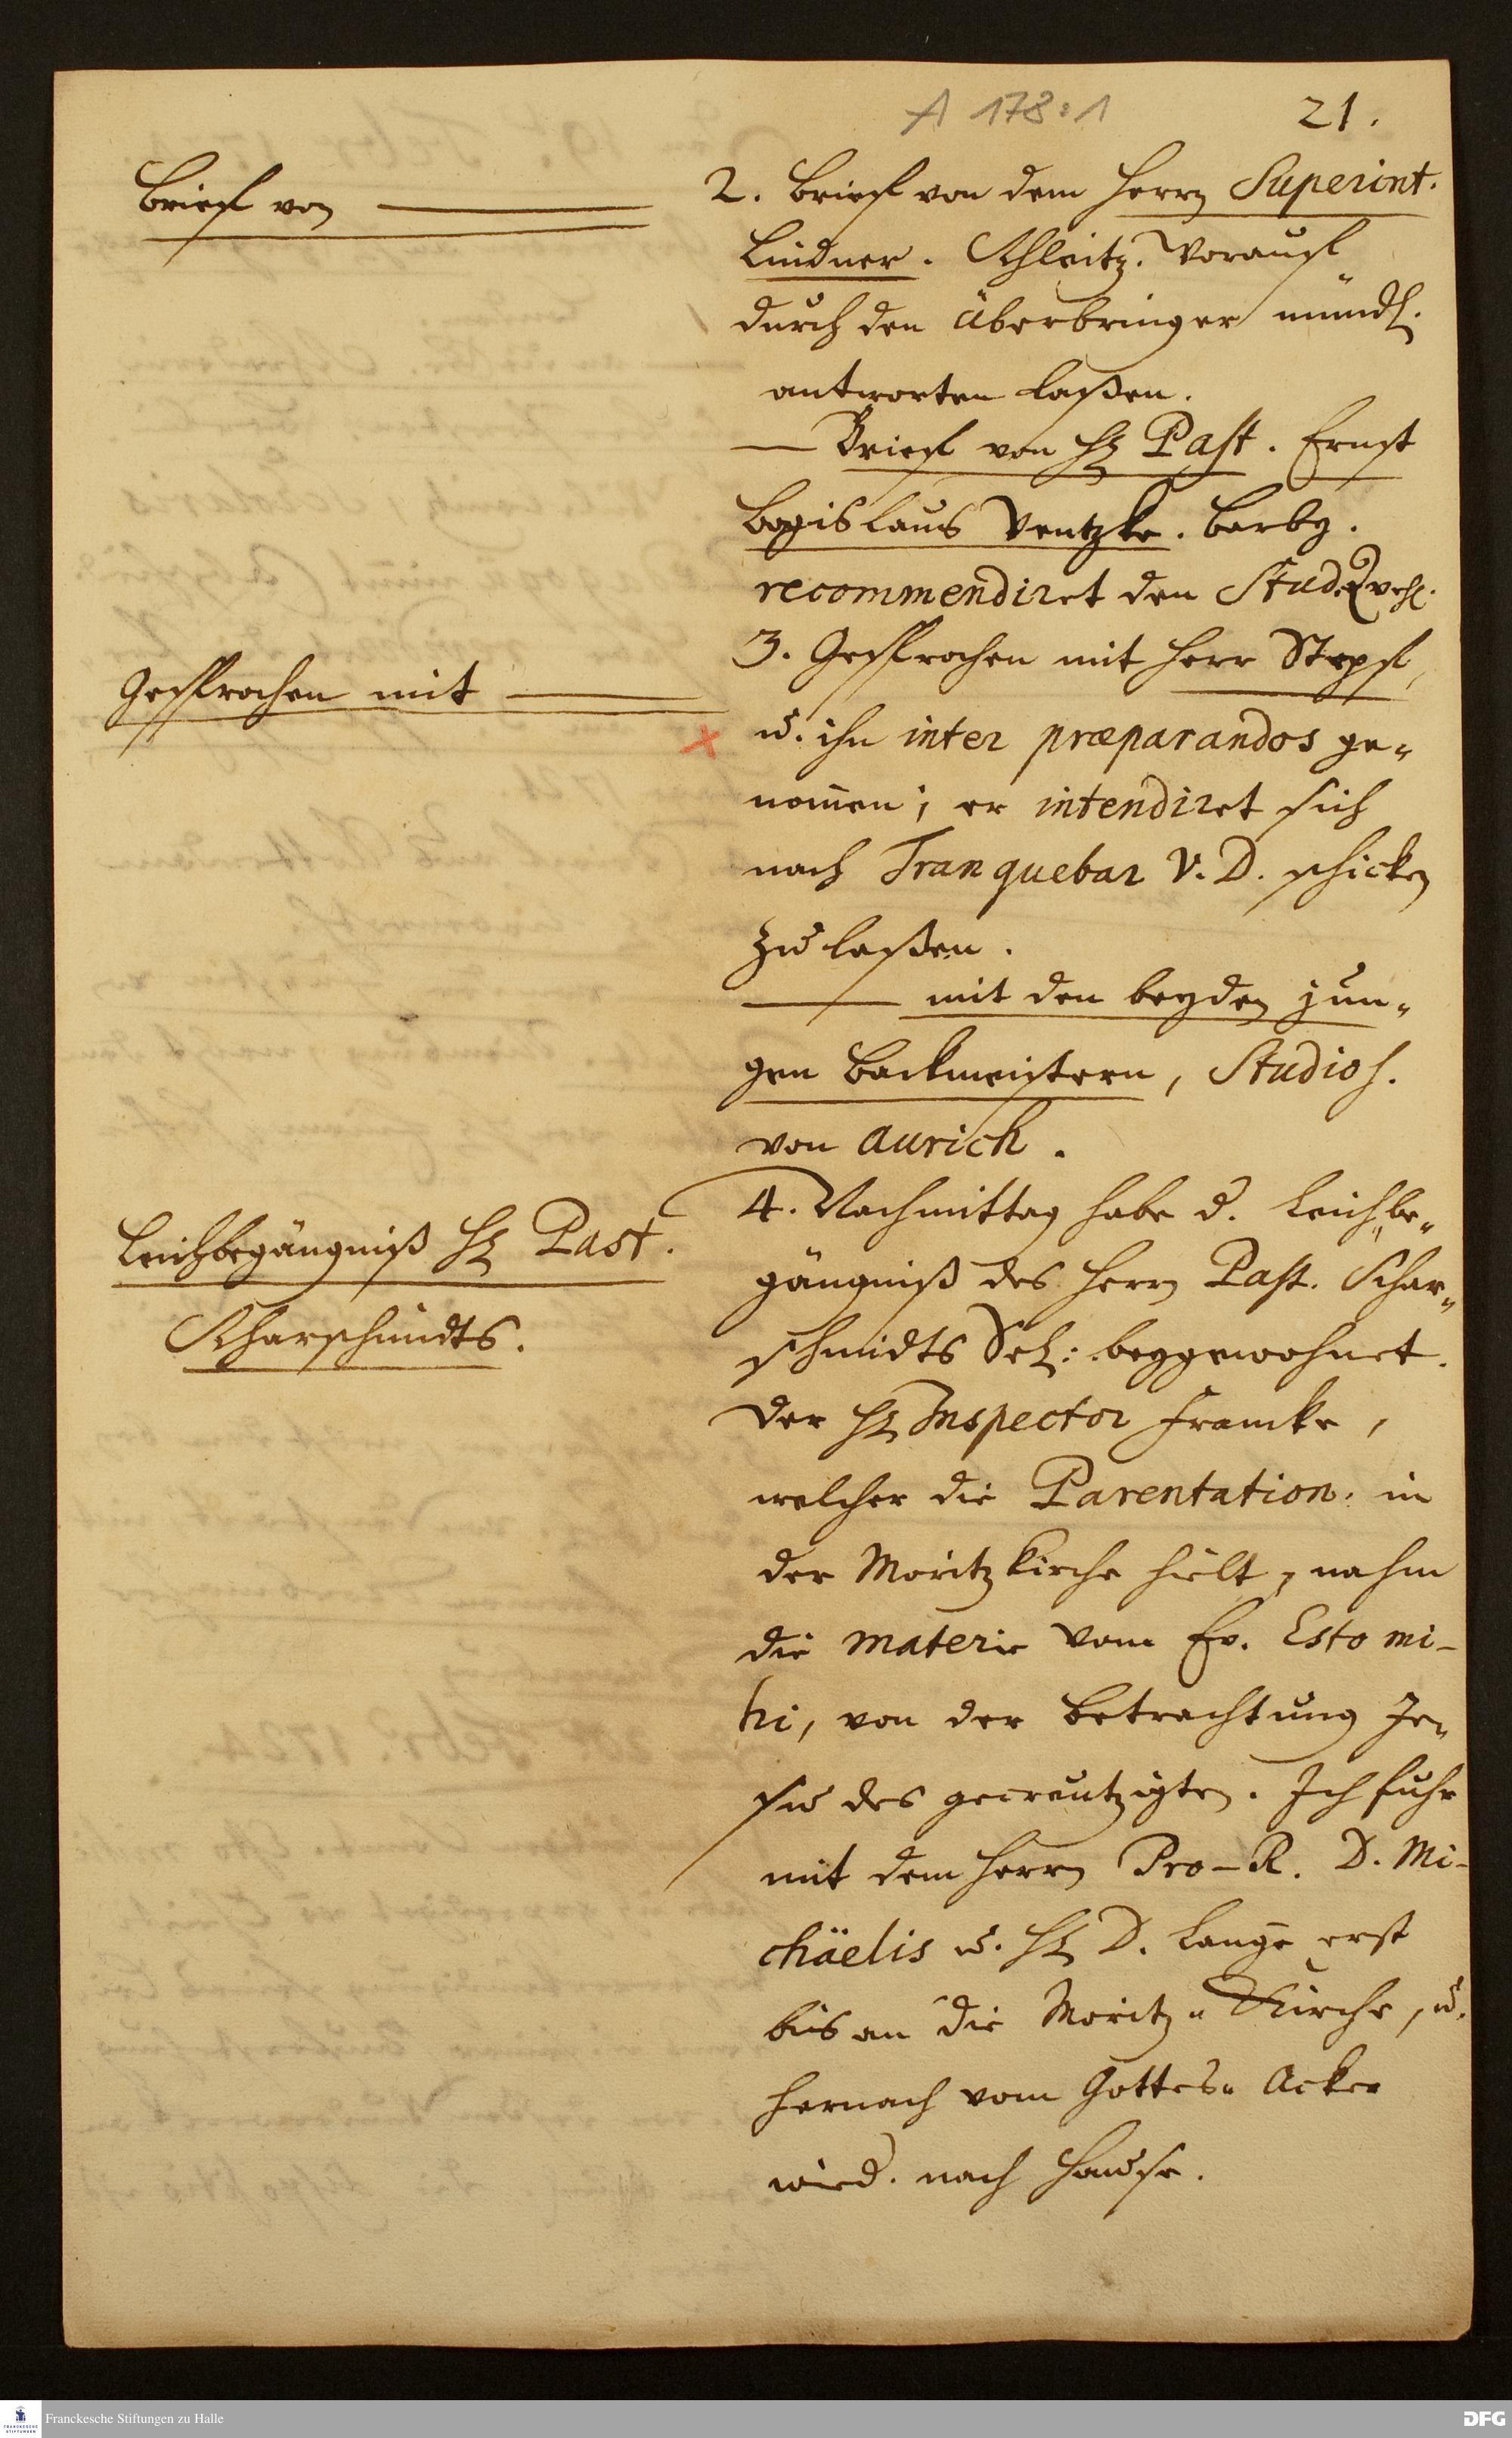 A 178:1
21.
Brieff von
2. Brieff von dem Herrn Superint.
Lindner. Schleitz. Worauff
durch den Überbringer mündl.
antworten laßen.
— Brieff von H. Past. Ernst
Bogislaus Ventzke. Barby.
recommendiret den Stud.
Gesprochen mit
3. Gesprochen mit Herr Stepf,
u. ihn inter præparandos ge-
nom̅en; er intendiret sich
nach Tranquebar V. D. schicken
zu laßen.
— mit den beyden jun-
gen Backmeistern, Studios.
von Aurich.
Leichbegängniß H. Past.
Scharschmidts.
4. Nachmittag habe d. Leichbe-
gängniß des Herrn Past. Schar-
schmidts Sel: beygewohnet.
Der H. Inspector Francke,
welcher die Parentation in
der Moritzkirche hielt, nahm
die materie vom Ev. Esto mi-
hi, von der Betrachtung Je-
su des gecreutzigten. Ich fuhr
mit dem Herrn Pro-R. D. Mi-
chäelis u. H. D. Lange erst
bis an die Moritz-Kirche, u.
hernach vom Gottes-Acker
wied. nach Hause.
Franckesche Stiftungen zu Halle
DFG